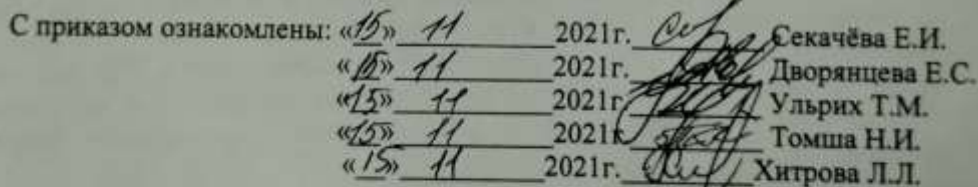 С приказом ознакомлены: «15» 11 2021г. Секачёва Е.И.
«15» 11 2021г. Дворянцева Е.С.
«15» 11 2021г Ульрих Т.М.
«15» 11 2021г. Томша Н.И.
«15» 11 2021г. Хитрова Л.Л.